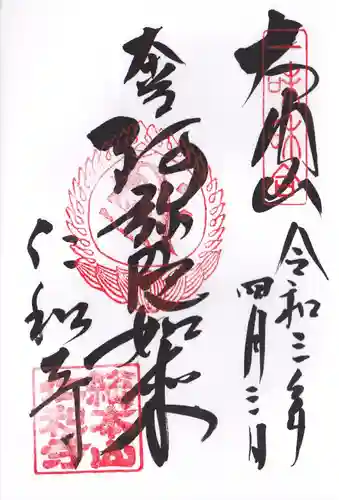 大内山
令和三年
四月三日
奉
阿弥陀如来
仁和寺
総本山
仁和寺